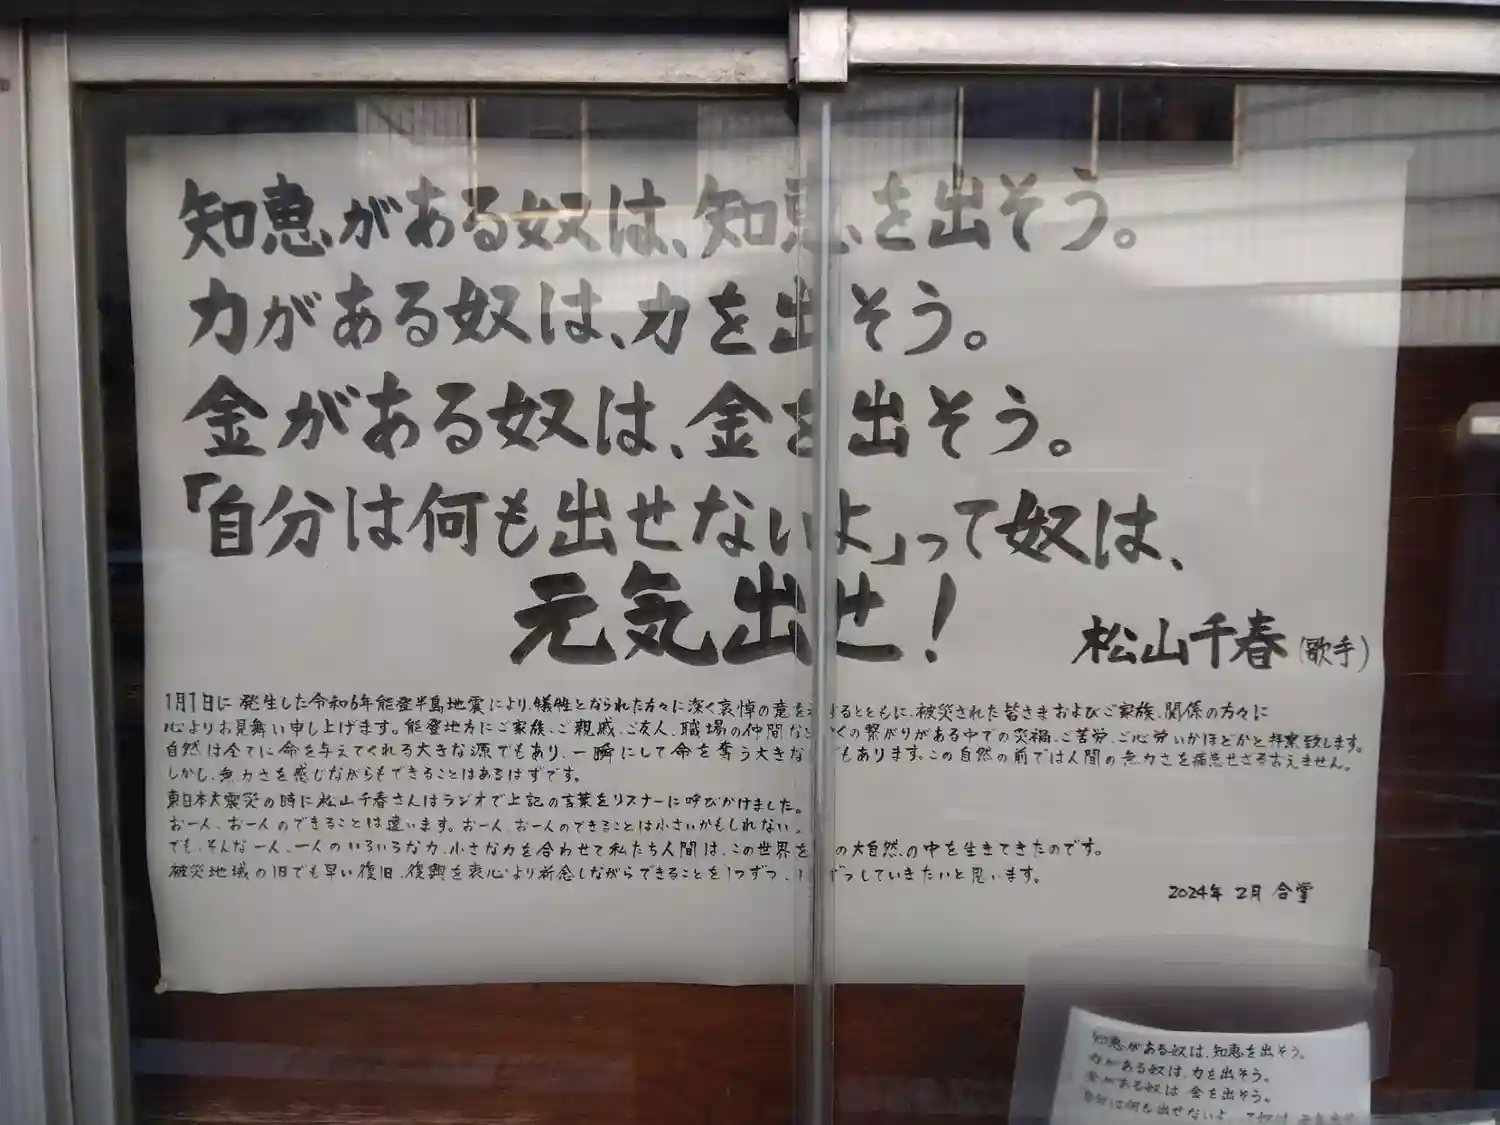 知恵がある奴は、知恵を出そう。
力がある奴は、力を出そう。
金がある奴は、金を出そう。
「自分は何も出せないよ」って奴は、
元気出せ!
松山千春(歌手)
1月1日に発生した令和6年能登半島地震により、犠牲となられた方々に深く哀悼の意を するとともに、被災された皆さまおよびご家族、関係の方々に
心よりお見舞い申し上げます。能登地方にご家族、ご親戚、ご友人、職場の仲間など くの繋がりがある中での災禍、ご苦労、ご心労いかほどかと拝察致します。
自然は全てに命を与えてくれる大きな源でもあり、一瞬にして命を奪う大きな でもあります。この自然の前では人間の無力さを痛感せざるおえません。
しかし、無力さを感じながらもできることはあるはずです。
東日本大震災の時に松山千春さんはラジオで上記の言葉をリスナーに呼びかけました。
お一人、お一人のできることは違います。お一人、お一人のできることは小さいかもしれない。
でも、そんな一人、一人のいろいろな力、小さな力を合わせて私たち人間は、この世界を の大自然の中を生きてきたのです。
被災地域の1日でも早い復旧、復興を衷心より祈念しながらできることを1つずつ、1 ずつしていきたいと思います。
2024年 2月 合掌
知恵がある奴は、知恵を出そう。
力がある奴は、力を出そう。
金がある奴は 金を出そう。
自分は何も出せないよ って奴は